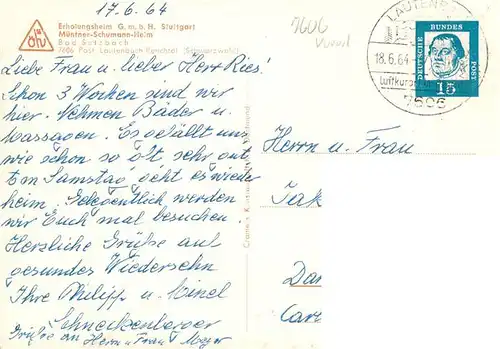 17.6.64
Erholungsheim G.m.b.H. Stuttgart
Müntner-Schumann-Heim
Bad Sulzbach
7606 Post Lautenbach Renchtal (Schwarzwald)
Liebe Frau u. lieber Herr Ries!
Schon 3 Wochen sind wir
hier. Nehmen Bäder u.
Massagen. Es gefällt uns
wie schon so oft, sehr gut
Am Samstag geht es wieder
heim. Gelegentlich werden
wir Euch mal besuchen.
Herzliche Grüße auf
gesundes Wiedersehn
Ihre Philipp u. Minel
Schneckenberger
Grüße an Herrn u Frau Mayer
7606
LAUTENB
18.6.64
Luftkurort
7606
DEUTSCHE
BUNDES
POST
15
Herrn u. Frau
Jak
Dar
Car